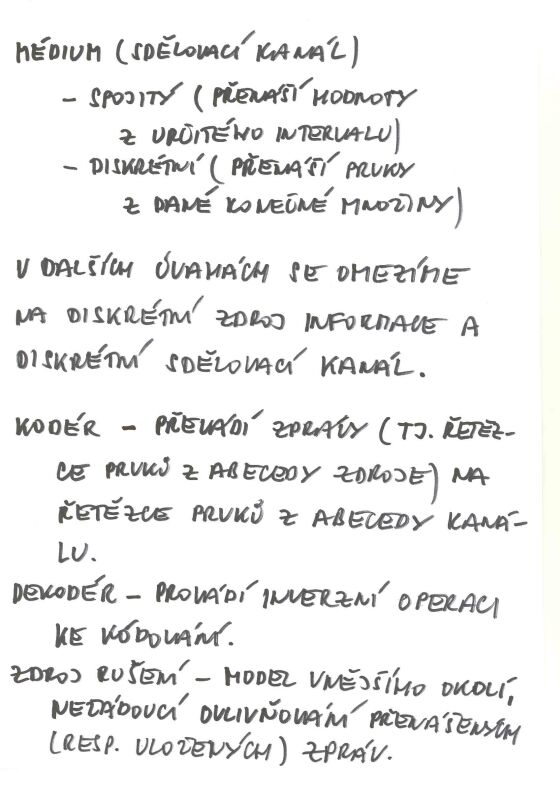 MÉDIUM (SDĚLOVACÍ KANÁL)
– SPOJITÝ (PŘENÁŠÍ HODNOTY
Z URČITÉHO INTERVALU)
– DISKRÉTNÍ (PŘENÁŠÍ PRVKY
Z DANÉ KONEČNÉ MNOŽINY)
V DALŠÍCH ÚVAHÁCH SE OMEZÍME
NA DISKRÉTNÍ ZDROJ INFORMACE A
DISKRÉTNÍ SDĚLOVACÍ KANÁL.
KODÉR – PŘEVÁDÍ ZPRÁVY (TJ. ŘETĚZ-
CE PRVKŮ Z ABECEDY ZDROJE) NA
ŘETĚZCE PRVKŮ Z ABECEDY KANÁ-
LU.
DEKODÉR – PROVÁDÍ INVERZNÍ OPERACI
KE KÓDOVÁNÍ.
ZDROJ RUŠENÍ – MODEL VNĚJŠÍHO OKOLÍ,
NEŽÁDOUCÍ OVLIVŇOVÁNÍ PŘENÁŠENÝCH
(RESP. ULOŽENÝCH) ZPRÁV.